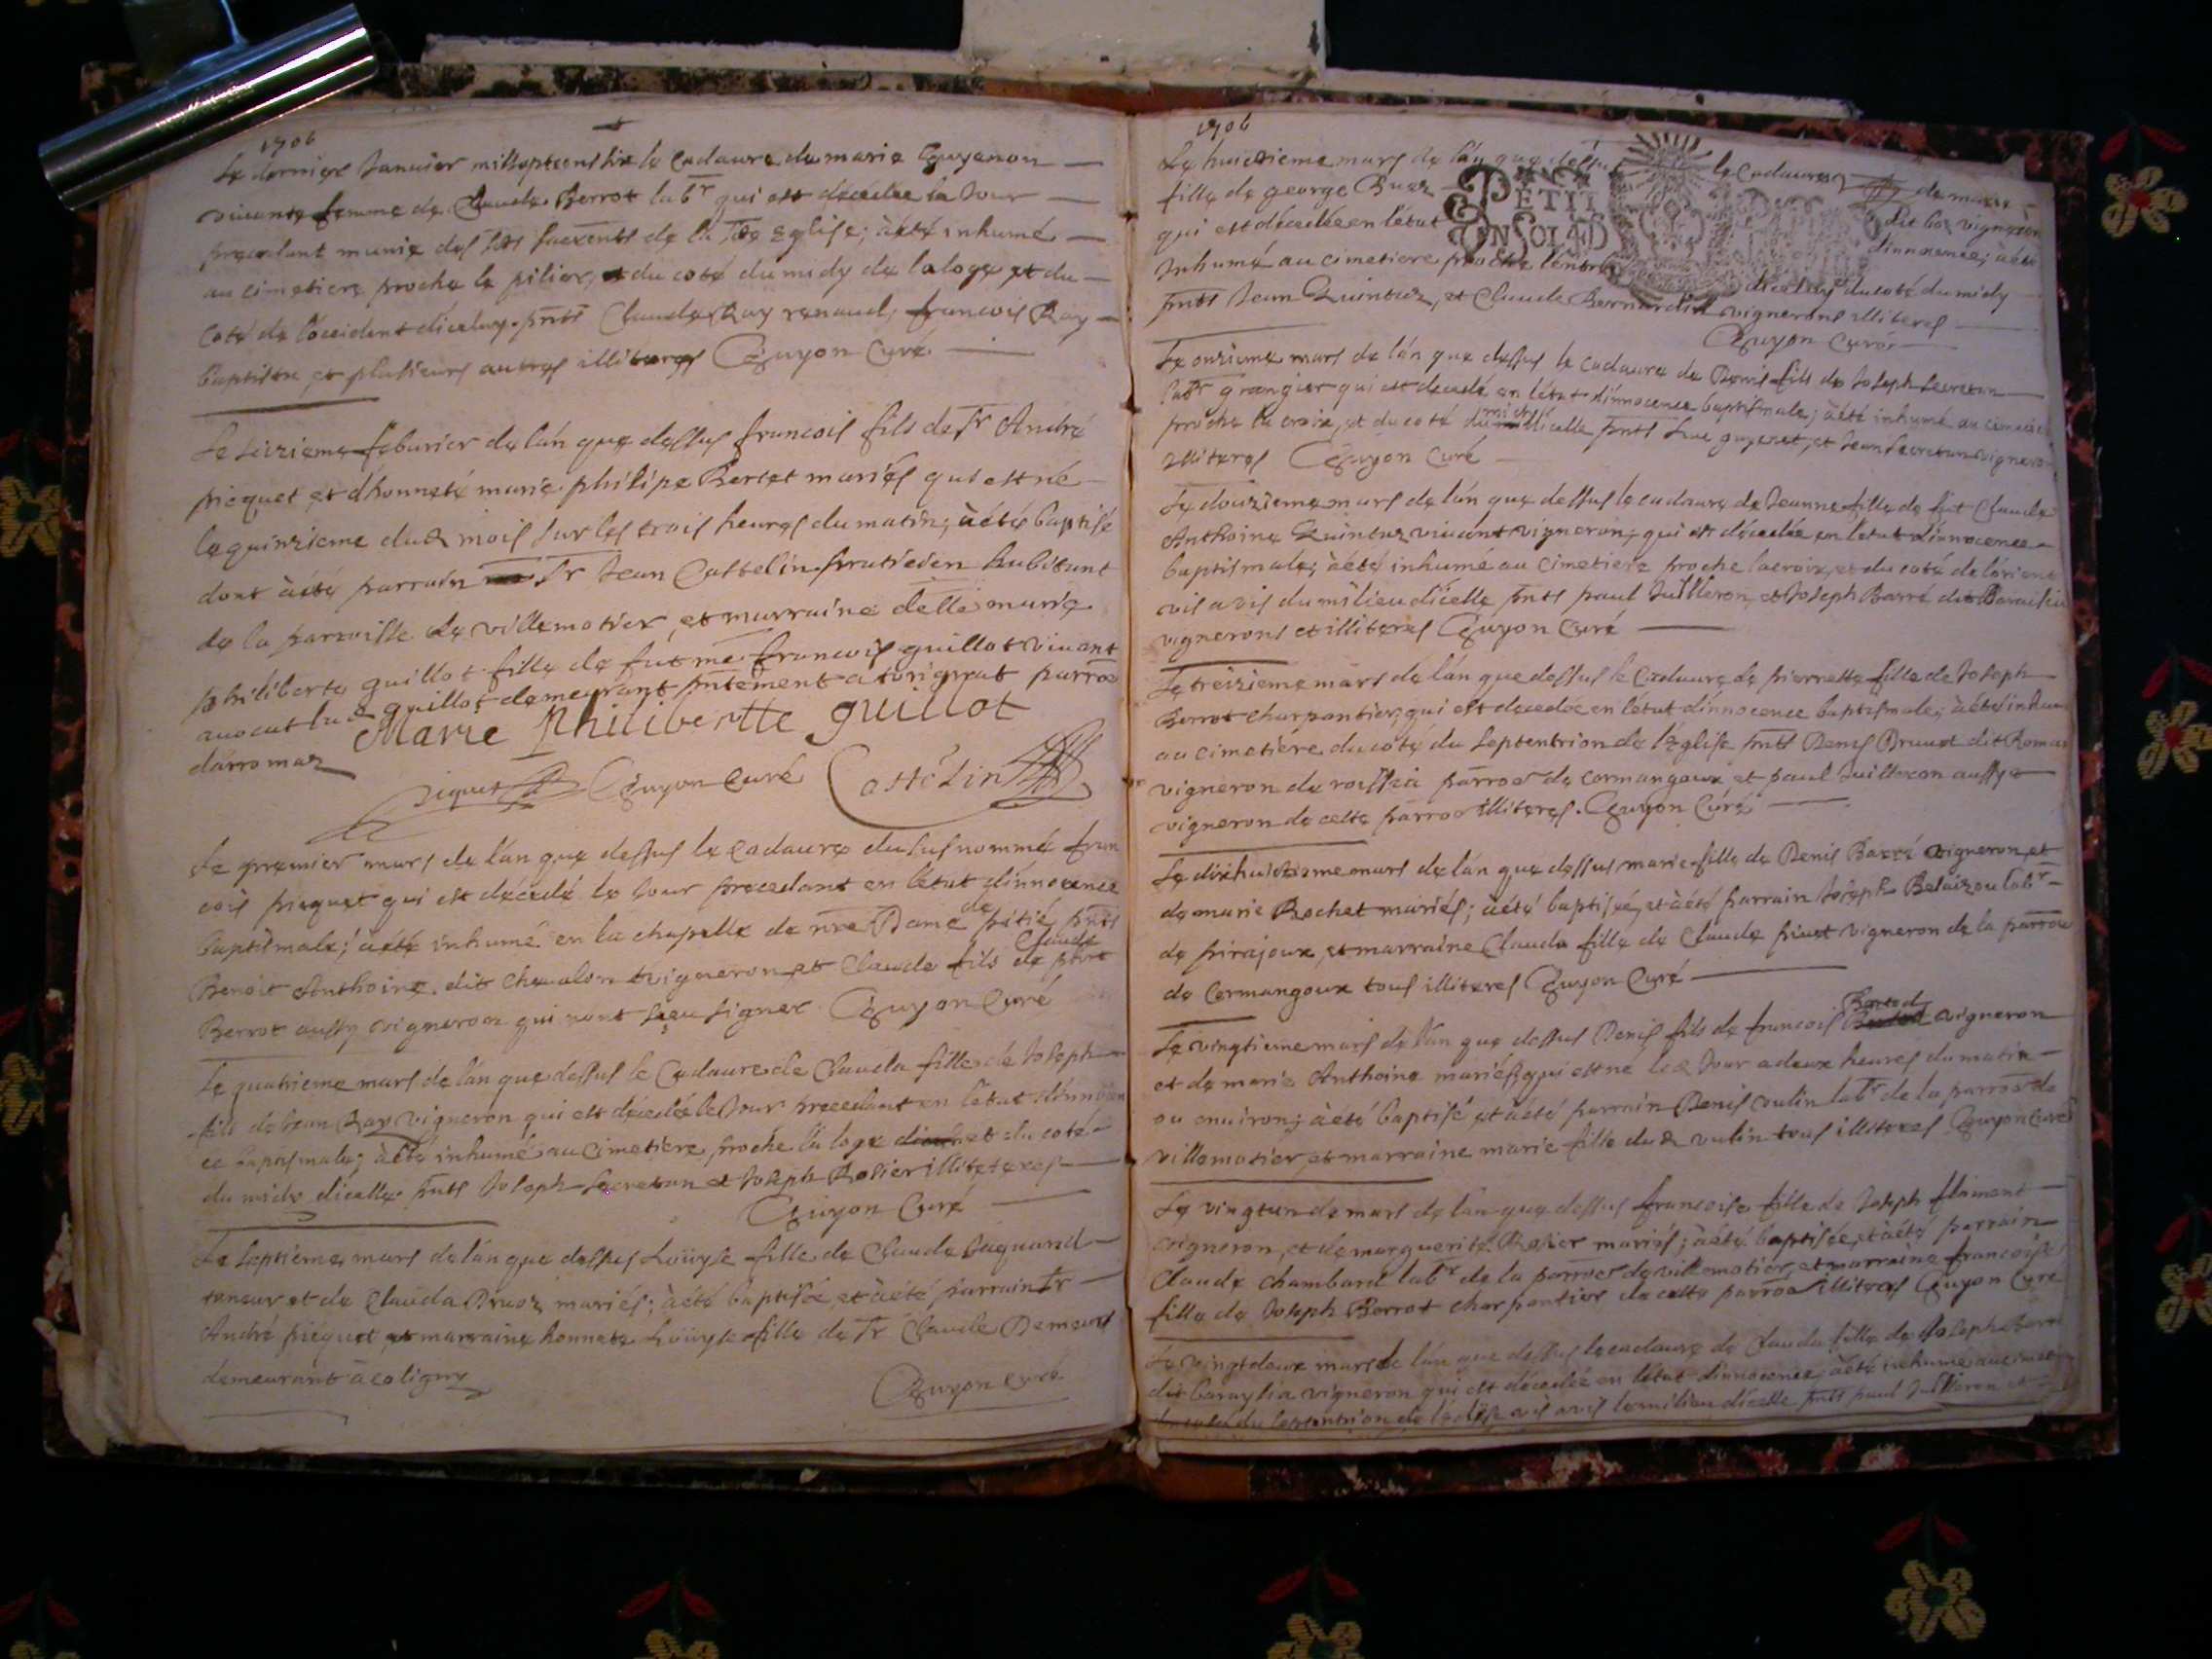 1706
Le dernier Janvier mil septcens six le Cadavre de marie Guyenon
vivante femme de Claude Berrot labr qui est decedée la Jour
precedant munie des Sts sacrents de la Ste Eglise; àété inhumé
au cimetiere proche le pilier, et du coté du midy de la loge et du
coté de l'óccident d'iceluy. pnts Claude Ray renaud, francois Ray
baptiste et plusieurs autres illiteres Guyon Curé
Le seizieme feburier de lán que dessus francois fils de Sr André
picquet et d'honnete marie philipe Bertet mariés qui est né
le quinzieme dud mois sur les trois heures du matin; àété baptisé
dont àété parrain Sr Jean Castelin praticien habitant
de la parroisse de villemotier, et marraine delle marie
philiberte guillot fille de fut me francois guillot vivant
avocat lad guillot demeurant pntement a torignat parroe
darromaz
Marie Philibertte guillot
piquet Guyon Curé Castélin
Le premier mars de lán que dessus le Cadavre du susnommé fran
cois picquet qui est décédé le Jour precedant en létat dinnocence
baptismale; àété inhumé en la chapelle de nre Dame de pitié pnts
Benoit Anthoine dit chevalon vigneron et Claude fils de Claude
Berrot aussy vigneron qui nont sceu signer Guyon Curé
Le quatrieme mars de lán que dessus le Cadavre de Clauda fille de Joseph
fils de Jean Ray vigneron qui est décédée le Jour precedant en létat dinnocen
ce baptismale; àété inhumé au Cimetiere proche la loge et du coté
du midy dicelle pnts Joseph Secretan et Joseph Rosier illiteteres
Guyon Curé
Le Septieme mars de lán que dessus Loüyse fille de Claude Jaquand
et de Clauda mariés; àété baptisée, et àété parrain Sr
André picquet et marraine honnete Loüyse fille de Sr Claude Demeurs
demeurant à coligny
Guyon curé
1706
Le huictieme mars de lán que dessus le Cadavre de marie
fille de george dit vigneron
qui est décédée en létat dinnocence; àété
Inhumé au cimetiere proche léntrée dicelluy du coté du midy
PETIT
EN SOL 4D
pnts Jean Quintuz, et Claude Bernardin vignerons illiteres
Guyon Curé
Le onzieme mars de lán que dessus le cadavre de Denis fils de Joseph Secretan
labr grangier qui est decedé en létat dinnocence baptismale; àété inhumé au cimetiere
proche la croix, et du coté du midy dicelle pnts Luc guyenet, et Jean Secretan vigneron
illiteres Guyon Curé
Le douzieme mars de lán que dessus le cadavre de Jeanne fille de fut Claude
Anthoine Quintuz vivant vigneron; qui est décedée en létat dinnocence
baptismale; àété inhumé au Cimetiere proche lacroix, et du coté de lórient
vis a vis du milieu dicelle pnts paul Juilleron et Joseph Barré dit
vignerons et illiteres Guyon Curé
Le treizieme mars de lán que dessus le Cadavre de pierrette fille de Joseph
Berrot charpantier; qui est decedée en létat dinnocence baptismale; àété inhumé
au cimetière du coté du septentrion de lEglise pnts Denis Bruuet dit Roman
vigneron de parroe de cormangoux et paul Juilleron aussy
vigneron de cette parroe illiteres. Guyon Curé
Le dixhuictieme mars de lán que dessus marie fille de Denis Barré vigneron et
de marie Rochet mariés; àété baptisée, et àété parrain Joseph labr
de pirajoux, et marraine Clauda fille de Claude vigneron de la parroe
de Cormangoux tous illiteres Guyon Curé
Le vingtieme mars de lán que dessus Denis fils de francois vigneron
et de marie Anthoine mariés, qui est né led Jour a deux heures du matin
ou environ; àété baptisé et àété parrain Denis vulin labr de la parroe de
villemotier, et marraine marie fille dud vulin tous illiteres Guyon Curé
Le vingtun de mars de lán que dessus francoise fille de Joseph flament
vigneron, et de marguerite Rosier mariés; àété baptisée, et àété parrain
Claude chambard labr de la parroe de villemotier, et marraine francoise
fille de Joseph Berrot charpantier de cette parroe illiteres Guyon Curé
Le vingtdeux mars de lán que dessus le cadavre de Clauda fille de Joseph
dit vigneron qui est décedée en létat dinnocence, àété inhumé au cimet
du coté du septentrion de léglise vis avis le milieu dicelle pnts paul Juilleron et